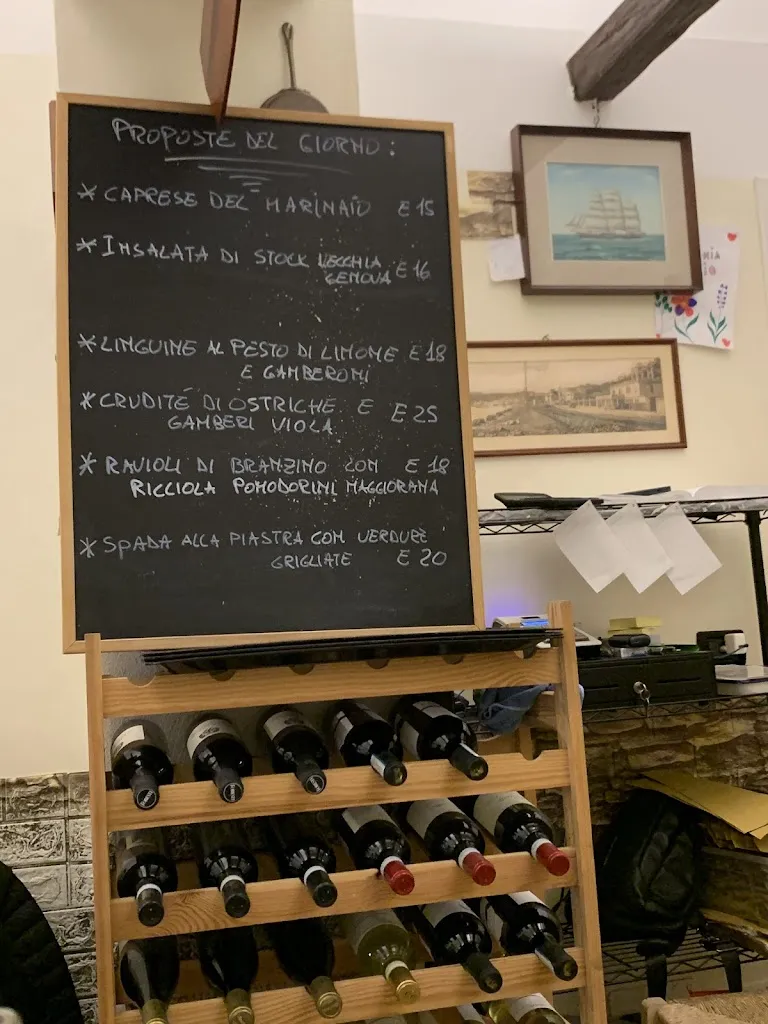 PROPOSTE DEL GIORNO:
* CAPRESE DEL MARINAIO E 15
* INSALATA DI STOCK VECCHIA
GENOVA E 16
* LINGUINE AL PESTO DI LIMONE E 18
E GAMBERONI
* CRUDITÉ DI OSTRICHE E E 25
GAMBERI VIOLA
* RAVIOLI DI BRANZINO CON E 18
RICCIOLA POMODORINI MAGGIORANA
* SPADA ALLA PIASTRA CON VERDURE
GRIGLIATE E 20